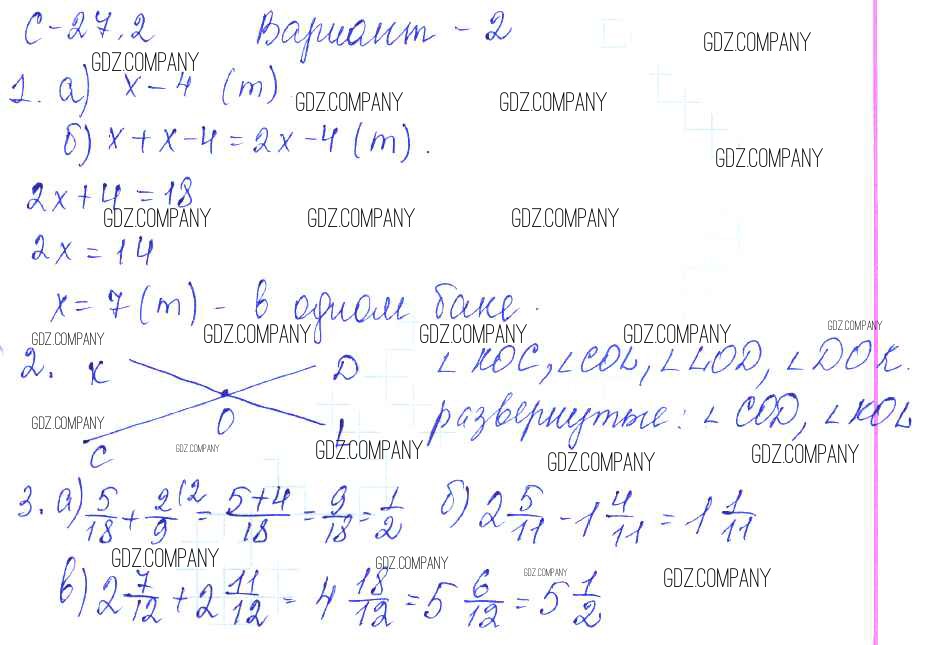 С-27.2 Вариант - 2
GDZ.COMPANY GDZ.COMPANY
1. а) х - 4 (т)
GDZ.COMPANY GDZ.COMPANY
б) х + х - 4 = 2х - 4 (т).
GDZ.COMPANY
2х + 4 = 18
GDZ.COMPANY GDZ.COMPANY GDZ.COMPANY
2х = 14
х = 7 (т) - в одном баке.
GDZ.COMPANY GDZ.COMPANY GDZ.COMPANY GDZ.COMPANY GDZ.COMPANY
2. К D ∠KOC, ∠COL, ∠LOD, ∠DOK.
O
C L
развернутые: ∠COD, ∠KOL
GDZ.COMPANY GDZ.COMPANY GDZ.COMPANY GDZ.COMPANY GDZ.COMPANY
3. а) 5/18 + 2/9 (2 = 5+4/18 = 9/18 = 1/2 б) 2 5/11 - 1 4/11 = 1 1/11
GDZ.COMPANY GDZ.COMPANY GDZ.COMPANY GDZ.COMPANY
в) 2 7/12 + 2 11/12 = 4 18/12 = 5 6/12 = 5 1/2